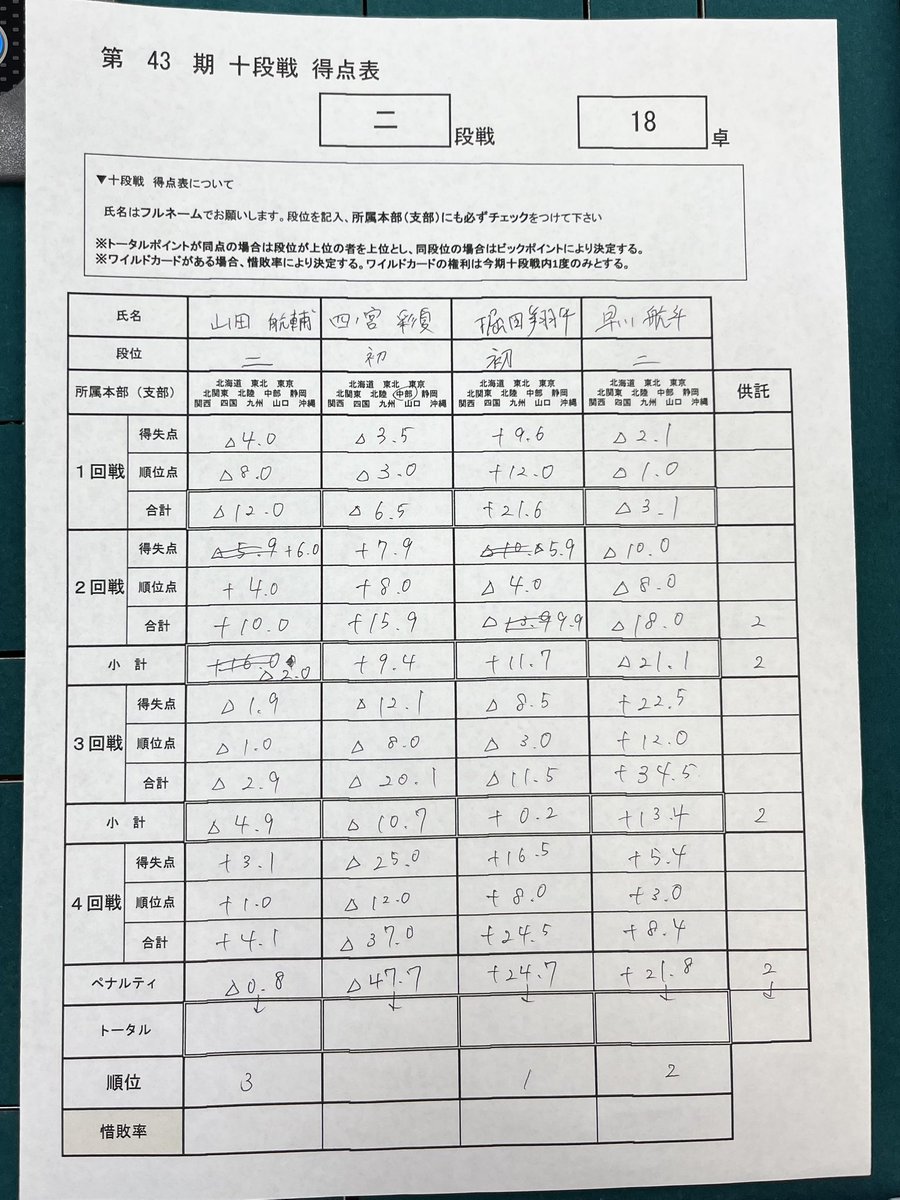 第 43 期 十段戦 得点表
二 段戦 18 卓
▼十段戦 得点表について
氏名はフルネームでお願いします。段位を記入、所属本部(支部)にも必ずチェックをつけて下さい
※トータルポイントが同点の場合は段位が上位の者を上位とし、同段位の場合はビックポイントにより決定する。
※ワイルドカードがある場合、惜敗率により決定する。ワイルドカードの権利は今期十段戦内1度のみとする。
氏名 山田 航輔 四ノ宮 彩夏 堀田翔午 早川 航斗
段位 二 初 初 二
所属本部(支部) 供託
北海道 東北 東京 北海道 東北 東京 北海道 東北 東京 北海道 東北 東京
北関東 北陸 中部 静岡 北関東 北陸 中部 静岡 北関東 北陸 中部 静岡 北関東 北陸 中部 静岡
関西 四国 九州 山口 沖縄 関西 四国 九州 山口 沖縄 関西 四国 九州 山口 沖縄 関西 四国 九州 山口 沖縄
1回戦
得失点 △4.0 △3.5 +9.6 △2.1
順位点 △8.0 △3.0 +12.0 △1.0
合計 △12.0 △6.5 +21.6 △3.1
2回戦
得失点 △5.9 +6.0 +7.9 △10. △5.9 △10.0
順位点 +4.0 +8.0 △4.0 △8.0
合計 +10.0 +15.9 △13.9 9.9 △18.0 2
小計 +16.0 △2.0 +9.4 +11.7 △21.1 2
3回戦
得失点 △1.9 △12.1 △8.5 +22.5
順位点 △1.0 △8.0 △3.0 +12.0
合計 △2.9 △20.1 △11.5 +34.5
小計 △4.9 △10.7 +0.2 +13.4 2
4回戦
得失点 +3.1 △25.0 +16.5 +5.4
順位点 +1.0 △12.0 +8.0 +3.0
合計 +4.1 △37.0 +24.5 +8.4
ペナルティ △0.8 △47.7 +24.7 +21.8 2
トータル ↓ ↓ ↓ ↓ ↓
順位 3 1 2
惜敗率